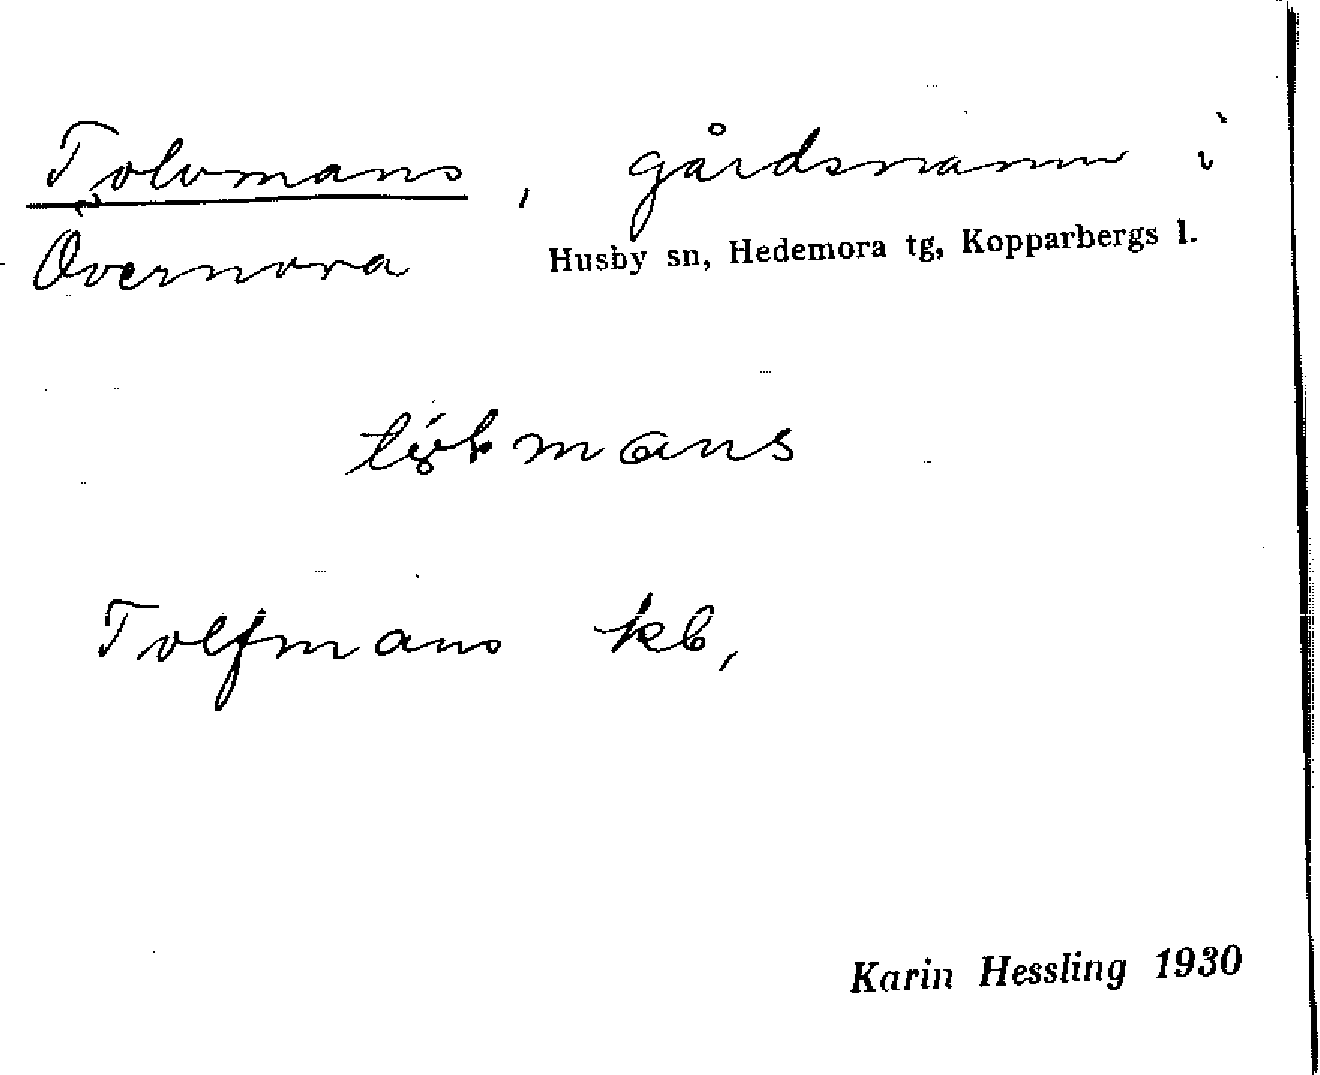 Tolvmans, gårdsnamn i
Övernora
Husby sn, Hedemora tg, Kopparbergs l.
Tolfmans kb,
Karin Hessling 1930